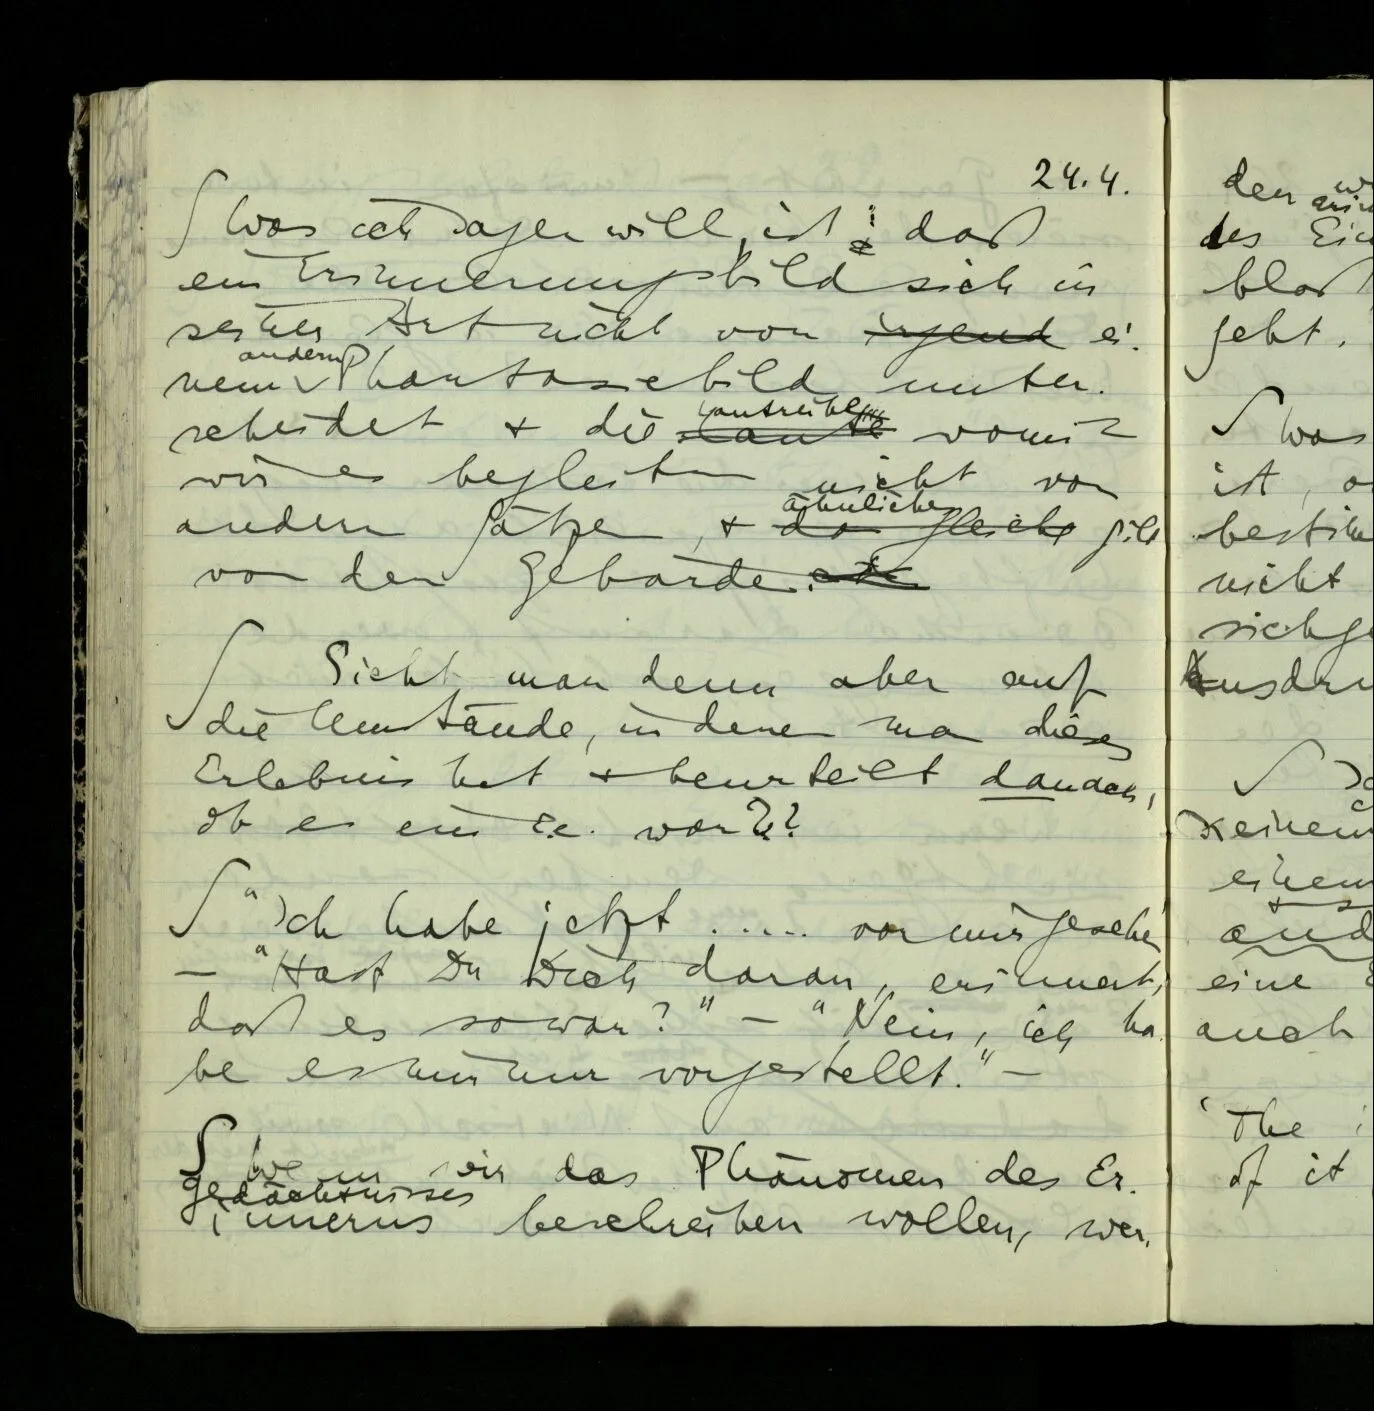 24.4.
∫ Was ich sagen will, ist: daß
ein Erinnerungsbild sich in
seiner Art nicht von irgend ei-
anderen
nem Phantasiebild unter-
scheidet + die
womit
wir es begleiten nicht von
ähnliches
andern Sätzen, + das gleiche gilt
von den Gebärden.
∫ Sieht man denn aber auf
die Umstände, in denen man dieses
Erlebnis hat + beurteilt danach,
ob es ein Er. war??
∫ "Ich habe jetzt ..... vor mir gesehen"
– "Hast Du Dich daran, erinnert,
daß es so war?" – "Nein, ich ha-
be es mir nur vorgestellt." –
∫ Wenn wir das Phänomen des Er-
Gedächtnisses
innerns beschreiben wollen, wer-
den
des
bloß
geht.
∫ Was
ist,
nicht
keinem
einem
eine
auch
'The
of it